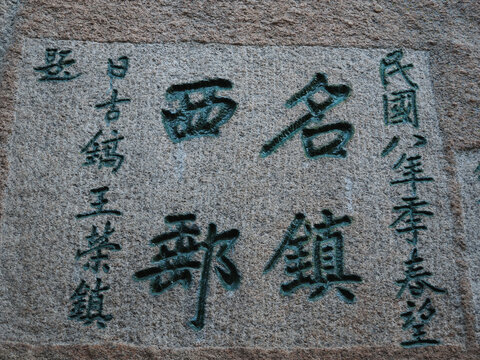 民國八年季春望
名鎮
西郵
日吉鎬王榮鎮
題